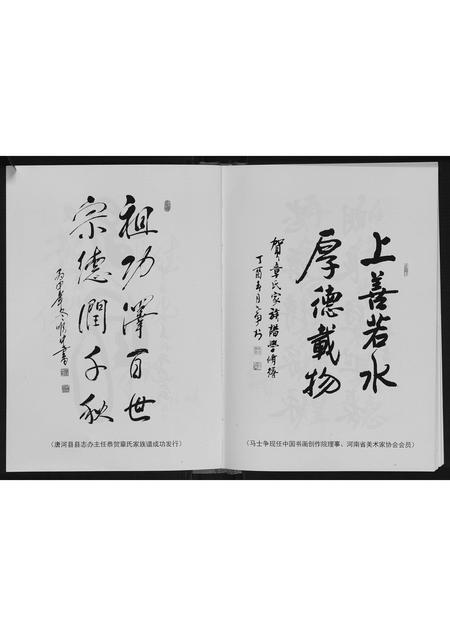 上善若水
厚德載物
賀章氏家族譜學傳揚
丁酉年
(马士争现任中国书画创作院理事、河南省美术家协会会员)
祖功澤百世
宗德潤千秋
丙申年冬
(唐河县县志办主任恭贺章氏家族谱成功发行)